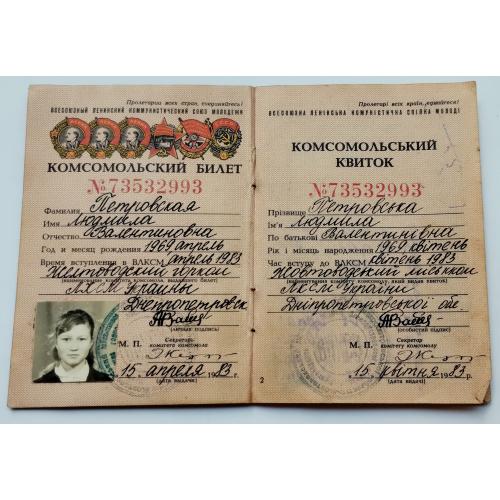 Пролетарии всех стран, соединяйтесь!
ВСЕСОЮЗНЫЙ ЛЕНИНСКИЙ КОММУНИСТИЧЕСКИЙ СОЮЗ МОЛОДЕЖИ
КОМСОМОЛЬСКИЙ БИЛЕТ
№73532993
Фамилия Петровская
Имя Людмила
Отчество Валентиновна
Год и месяц рождения 1969 апрель
Время вступления в ВЛКСМ апрель 1983
Желтоводский горком
(наименование комитета комсомола, выдавшего билет)
ЛКСМ Украины
Днепропетровск
(личная подпись)
М. П. Секретарь
комитета комсомола
15 апреля 1983 г.
(дата выдачи)
Пролетарі всіх країн, єднайтеся!
ВСЕСОЮЗНА ЛЕНІНСЬКА КОМУНІСТИЧНА СПІЛКА МОЛОДІ
КОМСОМОЛЬСЬКИЙ
КВИТОК
№73532993
Прізвище Петровська
Ім'я Людмила
По батькові Валентинівна
Рік і місяць народження 1969 квітень
Час вступу до ВЛКСМ квітень 1983
Жовтоводський міськком
(найменування комітету комсомолу, який видав квиток)
ЛКСМ України
Дніпропетровської обл.
(особистий підпис)
М. П. Секретар
комітету комсомолу
15 квітня 1983 р.
(дата видачі)
2